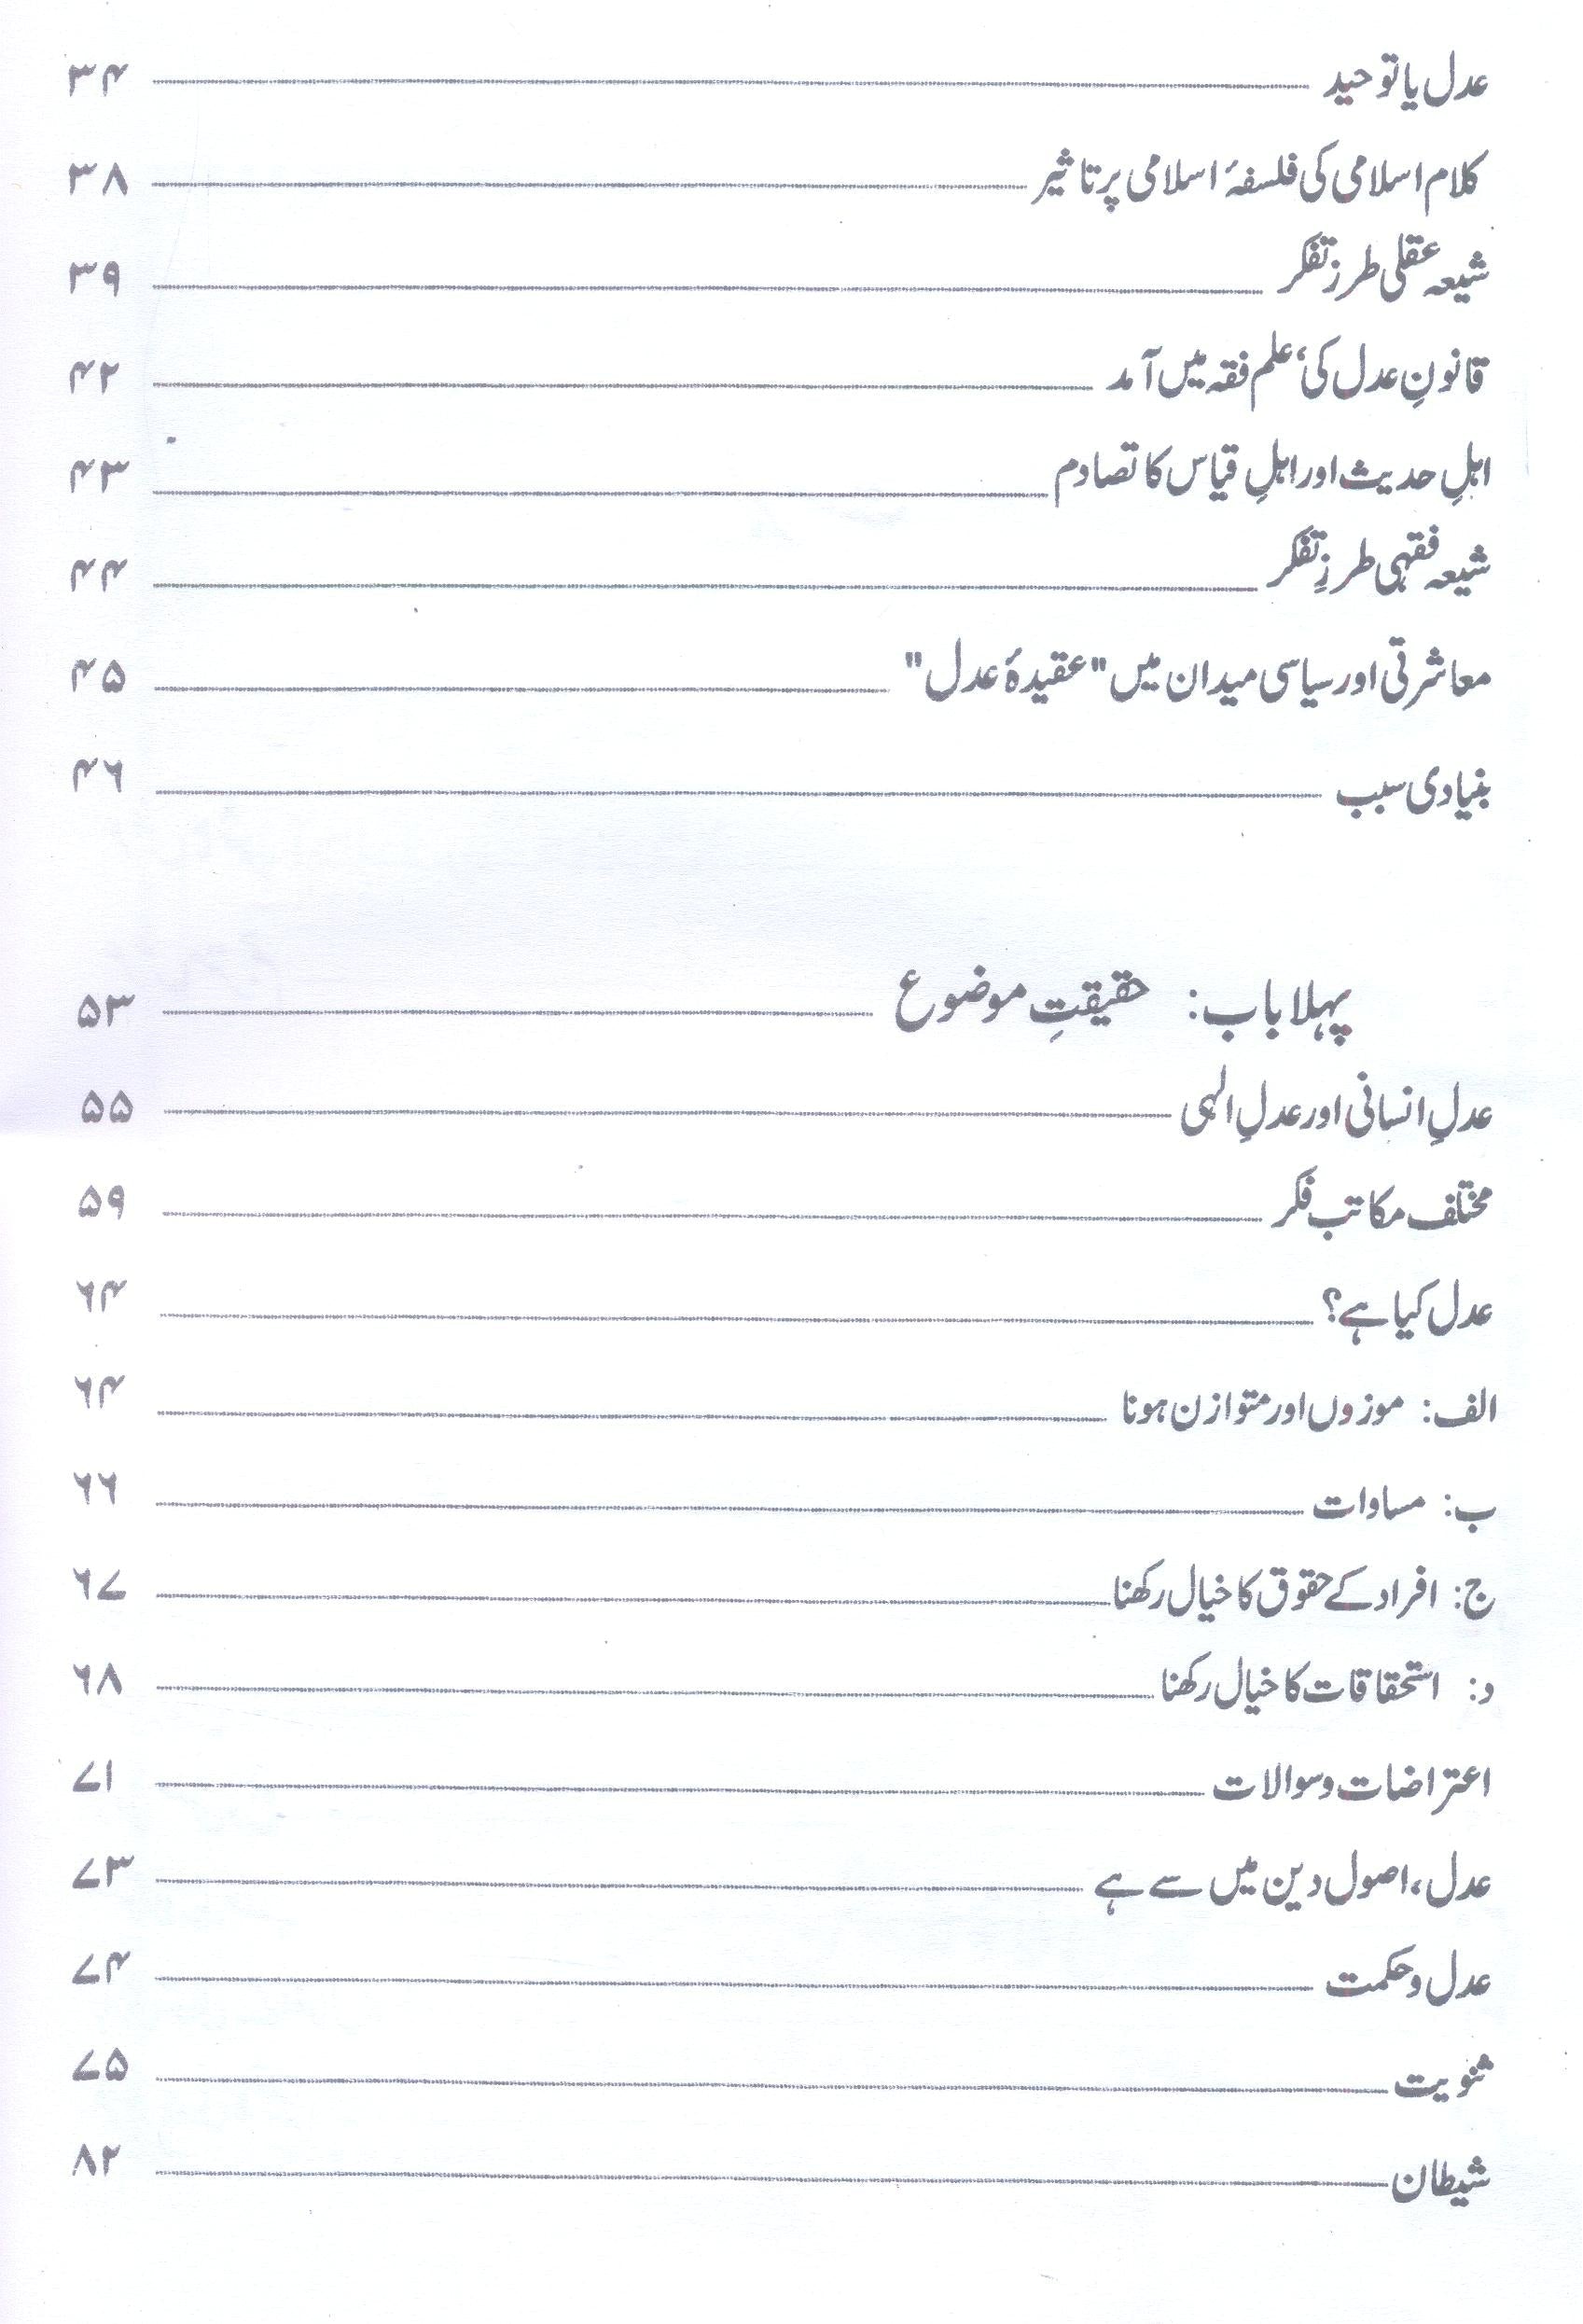 عدل یا توحید ۳۴
کلام اسلامی کی فلسفۂ اسلامی پر تاثیر ۳۸
شیعہ عقلی طرز تفکر ۳۹
قانونِ عدل کی، علم فقہ میں آمد ۴۲
اہلِ حدیث اور اہلِ قیاس کا تصادم ۴۳
شیعہ فقہی طرزِ تفکر ۴۴
معاشرتی اور سیاسی میدان میں "عقیدۂ عدل" ۴۵
بنیادی سبب ۴۶
پہلا باب: حقیقتِ موضوع ۵۳
عدلِ انسانی اور عدلِ الٰہی ۵۵
مختلف مکاتب فکر ۵۹
عدل کیا ہے؟ ۶۴
الف: موزوں اور متوازن ہونا ۶۴
ب: مساوات ۶۶
ج: افراد کے حقوق کا خیال رکھنا ۶۷
د: استحقاقات کا خیال رکھنا ۶۸
اعتراضات و سوالات ۷۱
عدل، اصول دین میں سے ہے ۷۳
عدل و حکمت ۷۴
ثنویت ۷۵
شیطان ۸۲